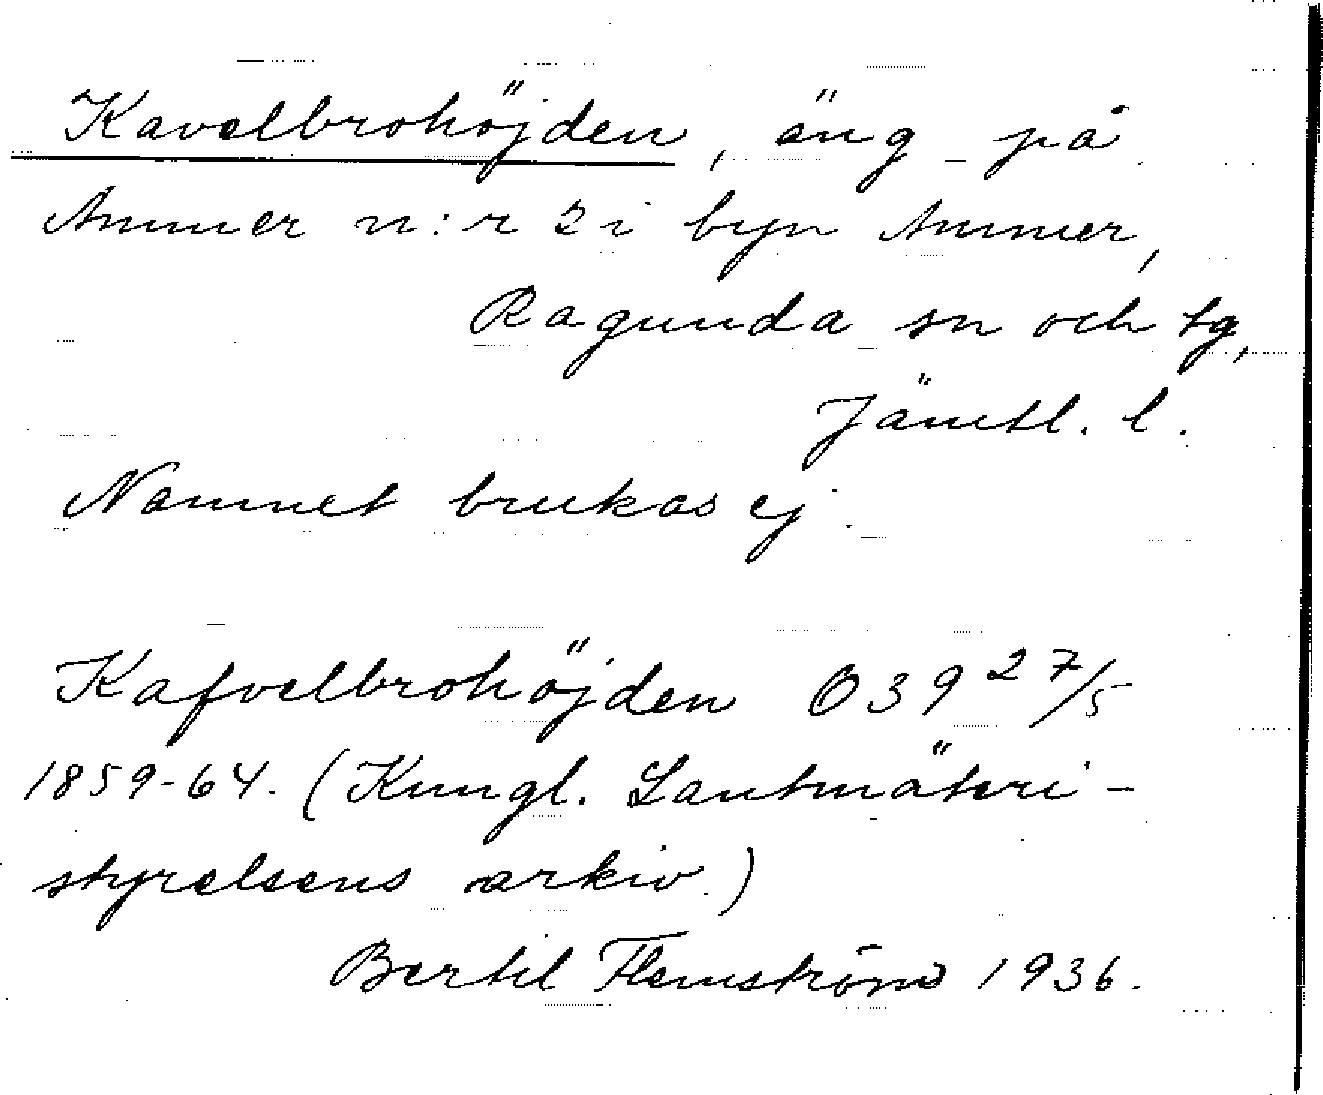 Kavelbrohöjden, äng på
Ammer n:r 2 i byn Ammer,
Ragunda sn och tg,
Jämtl. l.
Namnet brukas ej.
Kafvelbrohöjden O39 27/5
1859-64. (Kungl. Lantmäteri-
styrelsens arkiv.)
Bertil Flemström 1936.